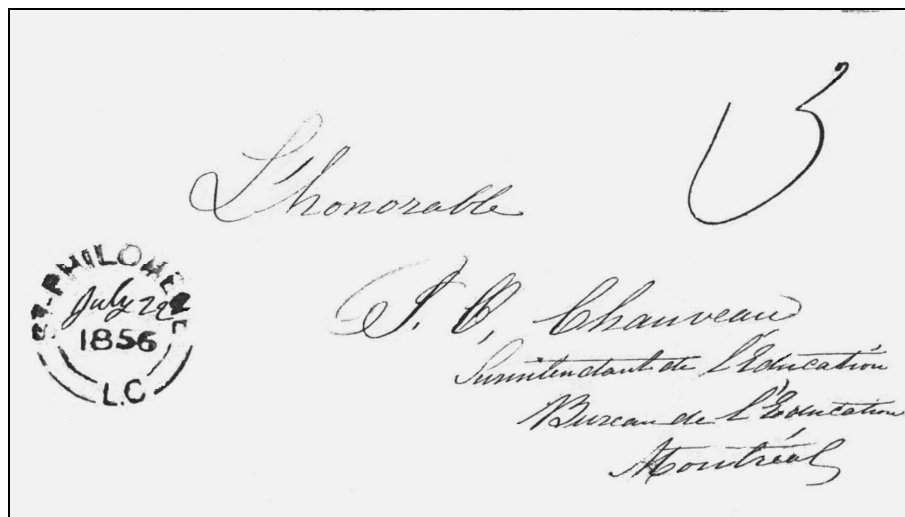 3
L'honorable
P. O, Chauveau
Surintendant de l'Education
Bureau de l'Education
Montréal
ST-PHILOMENE
July 22
1856
L.C